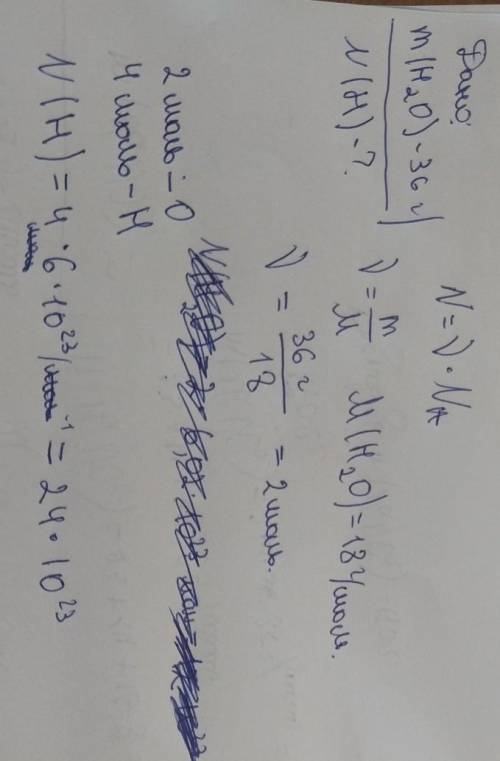 Дано:
m(H₂O) - 36 г
N(H) - ?
N = ν · Nₐ
ν = m/M   M(H₂O) = 18 г/моль.
ν = 36 г/18 = 2 моль.
2 моль - O
4 моль - H
N(H) = 4 моль · 6 · 10²³ моль⁻¹ = 24 · 10²³